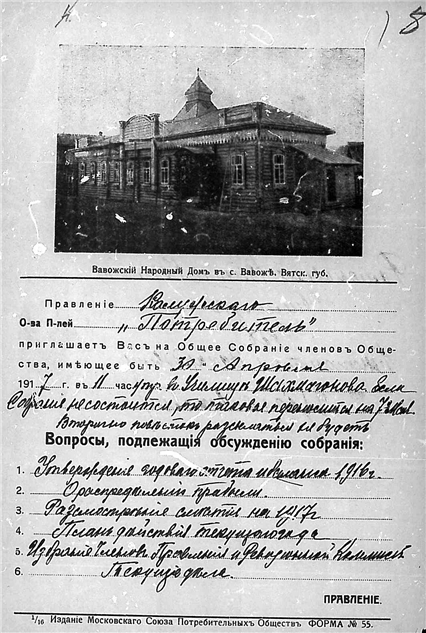 8
Вавожскій Народный Домъ въ с. Вавожѣ. Вятск. губ.
Правленіе Калужскаго
О-ва П-лей „Потребитель"
приглашаетъ Васъ на Общее Собраніе членовъ Обще-
ства, имѣющее быть 30 Апрѣля
1917 г. въ 11 час. утр. въ Училищѣ Шахмагонова. Если
Собраніе несостоится, то таковое переносится на 7 Мая
Вторично повѣстки разсылаться не будутъ
Вопросы, подлежащія обсужденію собранія:
1. Утвержденіе годового отчета и баланса 1916 г.
2. Распредѣленіе прибыли.
3. Разсмотрѣніе смѣты на 1917 г.
4. Планъ дѣйствій текущаго года
5. Избраніе Членовъ Правленія и Ревизіонной Комиссіи
6. Текущія дѣла.
ПРАВЛЕНІЕ.
1/16 Изданіе Московскаго Союза Потребительныхъ Обществъ ФОРМА № 55.